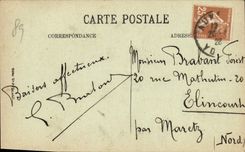 89
CARTE POSTALE
CORRESPONDANCE
ADRESSE
Baisers affectueux
G. Brabant
Monsieur Brabant
20 rue Mathulin-20
Elincourt
par Maretz
(Nord)